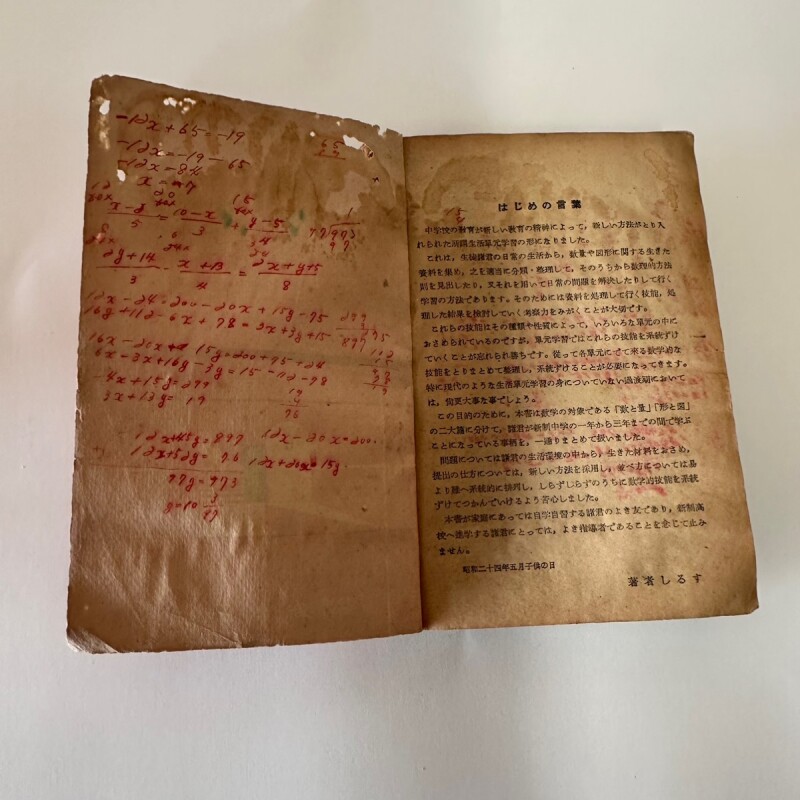 -12x+65=-19
-12x=-19-65
-12x=84
x-y/5=10-x/3+y-5/4
2y+14/3-x+13/4=2x+y+5/8
12x-24 200-20x+15y-75
16y+112-6x+78=3x+3y+15
15y=200+75+24
6x-3x+16y-3y=15-112-78
-4x+15y=299
3x+13y=19
12x+45y=897 12x-20x=200
12x+52y=76 12x+20x=15y
97y=973
はじめの言葉
中学校の教育が新しい教育の精神によって,新しい方法がとり入
れられた所謂生活單元学習の形になりました。
これは,生徒諸君の日常の生活から,数量や図形に関する生きた
資料を集め,之を適当に分類・整理して,そのうちから数理的方法
則を見出したり,又それを用いて日常の問題を解決したりして行く
学習の方法であります。そのためには資料を処理して行く技能,処
理した結果を検討していく考察力をみがくことが大切です。
これらの技能はその種類や性質によって,いろいろな單元の中に
おさめられているのですが,單元学習ではこれらの技能を系統ずけ
ていくことが忘れられ勝ちです。従って各單元にでて来る数学的な
技能をとりまとめて整理し,系統ずけることが必要になってきます。
特に現代のような生活單元学習の身についていない過渡期において
は,尙更大事な事でしょう。
この目的のために,本書は数学の対象である「数と量」「形と図」
の二大篇に分けて,諸君が新制中学の一年から三年までの間で学ぶ
ことになっている事柄を,一通りまとめて扱いました。
問題については諸君の生活環境の中から,生きた材料をおさめ,
提出の仕方については,新しい方法を採用し,並べ方については易
より難へ系統的に排列し,しらずしらずのうちに数学的技能を系統
ずけてつかんでいけるよう苦心しました。
本書が家庭にあっては自学自習する諸君のよき友であり,新制高
校へ進学する諸君にとっては,よき指導者であることを念じて止み
ません。
昭和二十四年五月子供の日
著者しるす